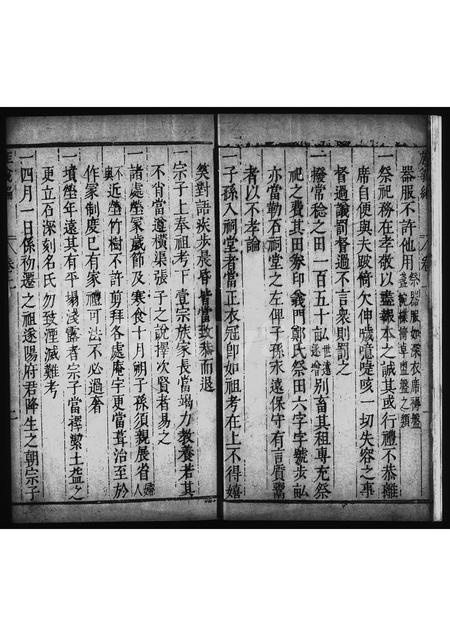 器服不許他用
祭器服如深衣席褥盤
盞椀碟椅卓盥盤之類
一祭祀務在孝敬以盡報本之誠其或行禮不恭離
席自便與夫跛倚欠伸噦噫嚏咳一切失容之事
督過議罰督過不言衆則罰之
一撥常稔之田一百五十畝
世遠
逐增
別蓄其租專充祭
祀之費其田券印義門鄭氏祭田六字字號步畝
亦當勒石祠堂之左俾子孫永遠保守有言質鬻
者以不孝論
一子孫入祠堂者當正衣冠即如祖考在上不得嬉
笑對語疾步晨昏皆當致恭而退
一宗子上奉祖考下壹宗族家長當竭力教養若其
不肖當遵橫渠張子之說擇次賢者易之
一諸處塋冢歲節及寒食十月朔子孫須親展省
婦
人
不
與
近塋竹樹不許剪拜各處庵宇更當葺治至於
作家制度已有家禮可法不必過奢
一墳塋年遠其有平塌淺露者宗子當擇潔土益之
更立石深刻名氏勿致湮滅難考
一四月一日係初遷之祖遂陽府君降生之朝宗子